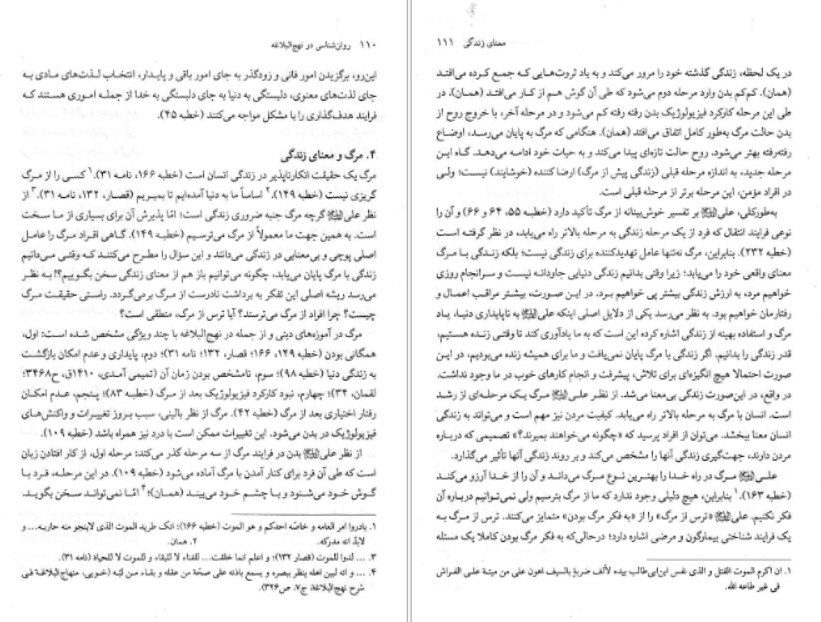 ۱۱۰ روان‌شناسی در نهج‌البلاغه
این‌رو، برگزیدن امور فانی و زودگذر به جای امور باقی و پایدار، انتخاب لذت‌های مادی به
جای لذت‌های معنوی، دلبستگی به دنیا به جای دلبستگی به خدا از جمله اموری هستند که
فرایند هدف‌گذاری را با مشکل مواجه می‌کنند (خطبه ۴۵).
۴. مرگ و معنای زندگی
مرگ یک حقیقت انکارناپذیر در زندگی انسان است (خطبه ۱۶۶، نامه ۳۱).۱ کسی را از مرگ
گریزی نیست (خطبه ۱۴۹).۲ اساساً ما به دنیا آمده‌ایم تا بمیریم (قصار، ۱۳۲، نامه ۳۱).۳ از
نظر علی گرچه مرگ جنبه ضروری زندگی است؛ امّا پذیرش آن برای بسیاری از ما سخت
است. به همین جهت ما معمولاً از مرگ می‌ترسیم (خطبه ۱۴۹). گاهی افراد مرگ را عامل
اصلی پوچی و بی‌معنایی در زندگی می‌دانند و این سؤال را مطرح می‌کنند که وقتی می‌دانیم
زندگی با مرگ پایان می‌یابد، چگونه می‌توانیم باز هم از معنای زندگی سخن بگوییم؟! به نظر
می‌رسد ریشه اصلی این تفکر به برداشت نادرست از مرگ برمی‌گردد. راستی حقیقت مرگ
چیست؟ چرا افراد از مرگ می‌ترسند؟ آیا ترس از مرگ، منطقی است؟
مرگ در آموزه‌های دینی و از جمله در نهج‌البلاغه با چند ویژگی مشخص شده است: اول،
همگانی بودن (خطبه ۱۴۹، ۱۶۶؛ قصار، ۱۳۲؛ نامه ۳۱)؛ دوم، پایداری و عدم امکان بازگشت
به زندگی دنیا (خطبه ۹۸)؛ سوم، نامشخص بودن زمان آن (تمیمی آمدی، ۱۴۱۰ق، ح۳۴۶۸؛
لقمان، ۳۴)؛ چهارم، نبود کارکرد فیزیولوژیک بعد از مرگ (خطبه ۸۳)؛ پنجم، عدم امکان
رفتار اختیاری بعد از مرگ (خطبه ۴۲). مرگ از نظر بالینی، سبب بروز تغییرات و واکنش‌های
فیزیولوژیک در بدن می‌شود. این تغییرات ممکن است با درد نیز همراه باشد (خطبه ۱۰۹).
از نظر علی بدن در فرایند مرگ از سه مرحله گذر می‌کند: مرحله اول، از کار افتادن زبان
است که طی آن فرد برای کنار آمدن با مرگ آماده می‌شود (خطبه ۱۰۹). در این مرحله، فرد با
گوش خود می‌شنود و با چشم خود می‌بیند (همان)؛۴ امّا نمی‌تواند سخن بگوید.
۱. بادروا امر العامه و خاصّه احدکم و هو الموت (خطبه ۱۶۶)؛ انک طرید الموت الذی لاینجو منه هاربه... و
لابدّ انه مدرکه. ۲. همان.
۳. ... لدوا للموت (قصار ۱۳۲)؛ و اعلم انما خلقت... للفناء لا للبقاء و للموت لا للحیاة (نامه ۳۱).
۴. ... و انه لبین اهله ینظر ببصره و یسمع باذنه علی صحّة من عقله و بقاء من لبّه (خویی، منهاج‌البلاغة فی
شرح نهج‌البلاغة، ج۷، ص۳۲۶).
معنای زندگی ۱۱۱
در یک لحظه، زندگی گذشته خود را مرور می‌کند و به یاد ثروت‌هایی که جمع کرده می‌افتد
(همان). کم‌کم بدن وارد مرحله دوم می‌شود که طی آن گوش هم از کار می‌افتد (همان). در
طی این مرحله کارکرد فیزیولوژیک بدن رفته رفته کم می‌شود و در مرحله آخر، با خروج روح از
بدن حالت مرگ به‌طور کامل اتفاق می‌افتد (همان). هنگامی که مرگ به پایان می‌رسد، اوضاع
رفته‌رفته بهتر می‌شود. روح حالت تازه‌ای پیدا می‌کند و به حیات خود ادامه می‌دهد. گاه این
مرحله جدید، به اندازه مرحله قبلی (زندگی پیش از مرگ) ارضا کننده (خوشایند) نیست؛ ولی
در افراد مؤمن، این مرحله برتر از مرحله قبلی است.
به‌طورکلی، علی بر تفسیر خوش‌بینانه از مرگ تأکید دارد (خطبه ۵۵، ۶۴ و ۶۶) و آن را
نوعی فرایند انتقال که فرد از یک مرحله زندگی به مرحله بالاتر راه می‌یابد، در نظر گرفته است
(خطبه ۲۳۲). بنابراین، مرگ نه‌تنها عامل تهدیدکننده برای زندگی نیست؛ بلکه زندگی با مرگ
معنای واقعی خود را می‌یابد؛ زیرا وقتی بدانیم زندگی دنیایی جاودانه نیست و سرانجام روزی
خواهیم مرد، به ارزش زندگی بیشتر پی خواهیم برد. در این صورت، بیشتر مراقب اعمال و
رفتارمان خواهیم بود. به نظر می‌رسد یکی از دلایل اصلی اینکه علی به ناپایداری دنیا، یاد
مرگ و استفاده بهینه از زندگی اشاره کرده این است که به ما یادآوری کند تا وقتی زنده هستیم،
قدر زندگی را بدانیم. اگر زندگی با مرگ پایان نمی‌یافت و ما برای همیشه زنده می‌بودیم، در این
صورت احتمالا هیچ انگیزه‌ای برای تلاش، پیشرفت و انجام کارهای خوب در ما وجود نداشت.
در واقع، در این‌صورت زندگی بی‌معنا می‌شد. از نظر علی مرگ یک مرحله‌ای از رشد
است. انسان با مرگ به مرحله بالاتر راه می‌یابد. کیفیت مردن نیز مهم است و می‌تواند به زندگی
انسان معنا ببخشد. می‌توان از افراد پرسید که «چگونه می‌خواهند بمیرند؟» تصمیمی که درباره
مردن دارند، جهت‌گیری زندگی آنها را مشخص می‌کند و بر روند زندگی آنها تأثیر می‌گذارد.
علی مرگ در راه خدا را بهترین نوع مرگ می‌داند و آن را از خدا آرزو می‌کند
(خطبه ۱۶۳).۱ بنابراین، هیچ دلیلی وجود ندارد که ما از مرگ بترسیم ولی نمی‌توانیم درباره آن
فکر نکنیم. علی «ترس از مرگ» را از «به فکر مرگ بودن» متمایز می‌کنند. ترس از مرگ به
یک فرایند شناختی بیمارگون و مرضی اشاره دارد؛ درحالی‌که به فکر مرگ بودن کاملا یک مسئله
۱. ان اکرم الموت القتل و الذی نفس ابن‌ابی‌طالب بیده لألف ضربةٍ بالسیف اهون علی من میتة علی الفراش
فی غیر طاعه الله.